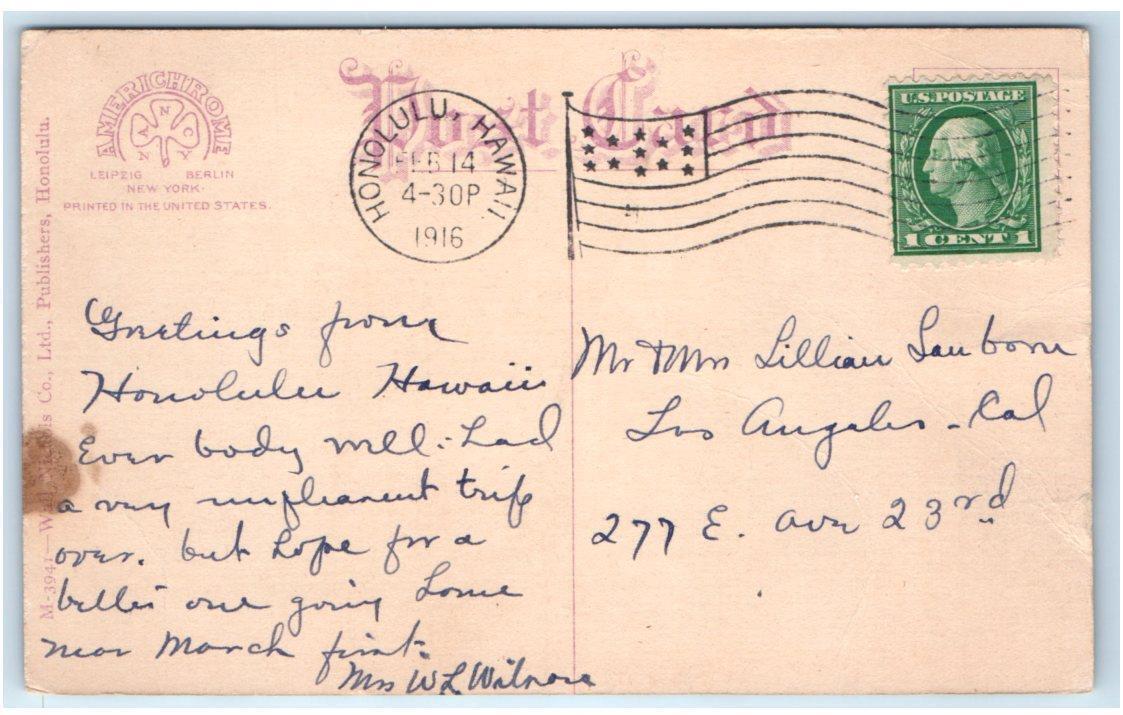 AMERICHROME
ANCNY
LEIPZIG BERLIN
NEW YORK.
PRINTED IN THE UNITED STATES.
Post Card
HONOLULU, HAWAII.
FEB 14
4-30P
1916
U.S. POSTAGE
1 CENT 1
M-3941— Co., Ltd., Publishers, Honolulu.
Greetings from
Honolulu Hawaii
Ever body well. had
a very unpleasent trip
over. but hope for a
better one going home
near March first.
Mrs W L
Mr & Mrs Lillian Sanborn
Los Angeles - Cal
277 E. Ave 23rd